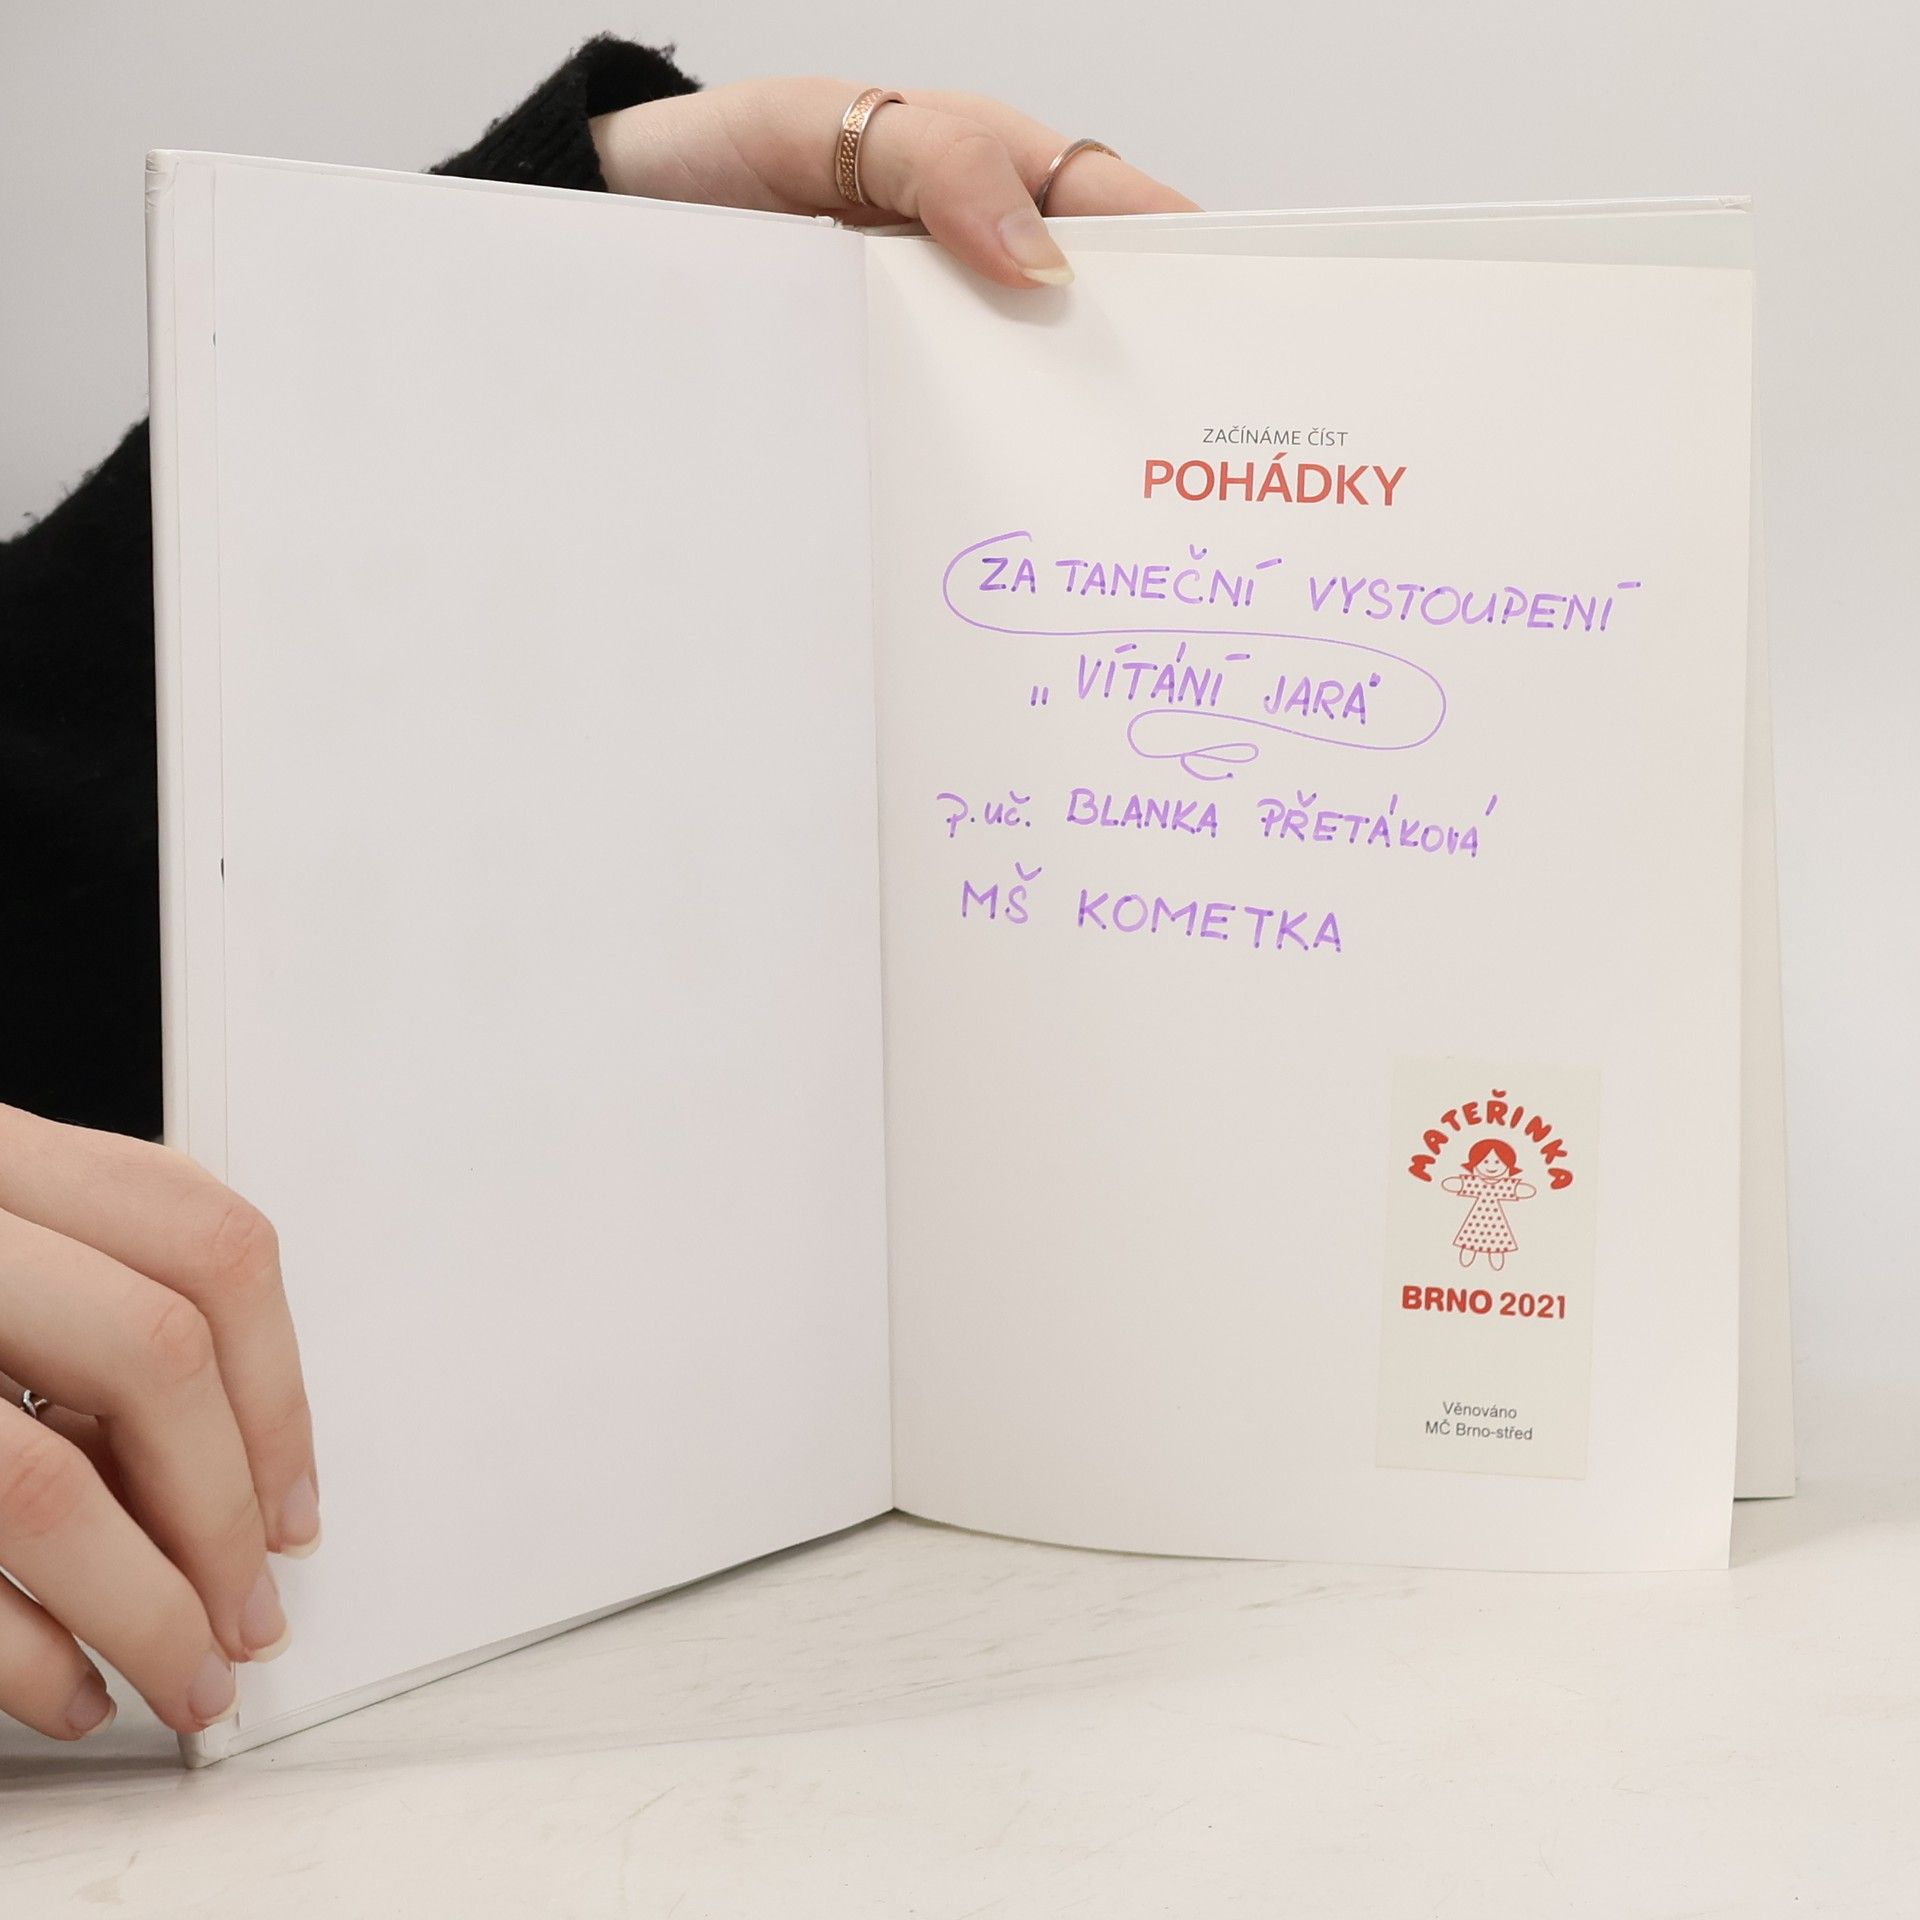 ZAČÍNÁME ČÍST
POHÁDKY
ZA TANEČNÍ VYSTOUPENÍ
„VÍTÁNÍ JARA"
p. uč. BLANKA PŘETÁKOVÁ
MŠ KOMETKA
MATEŘINKA
BRNO 2021
Věnováno
MČ Brno-střed